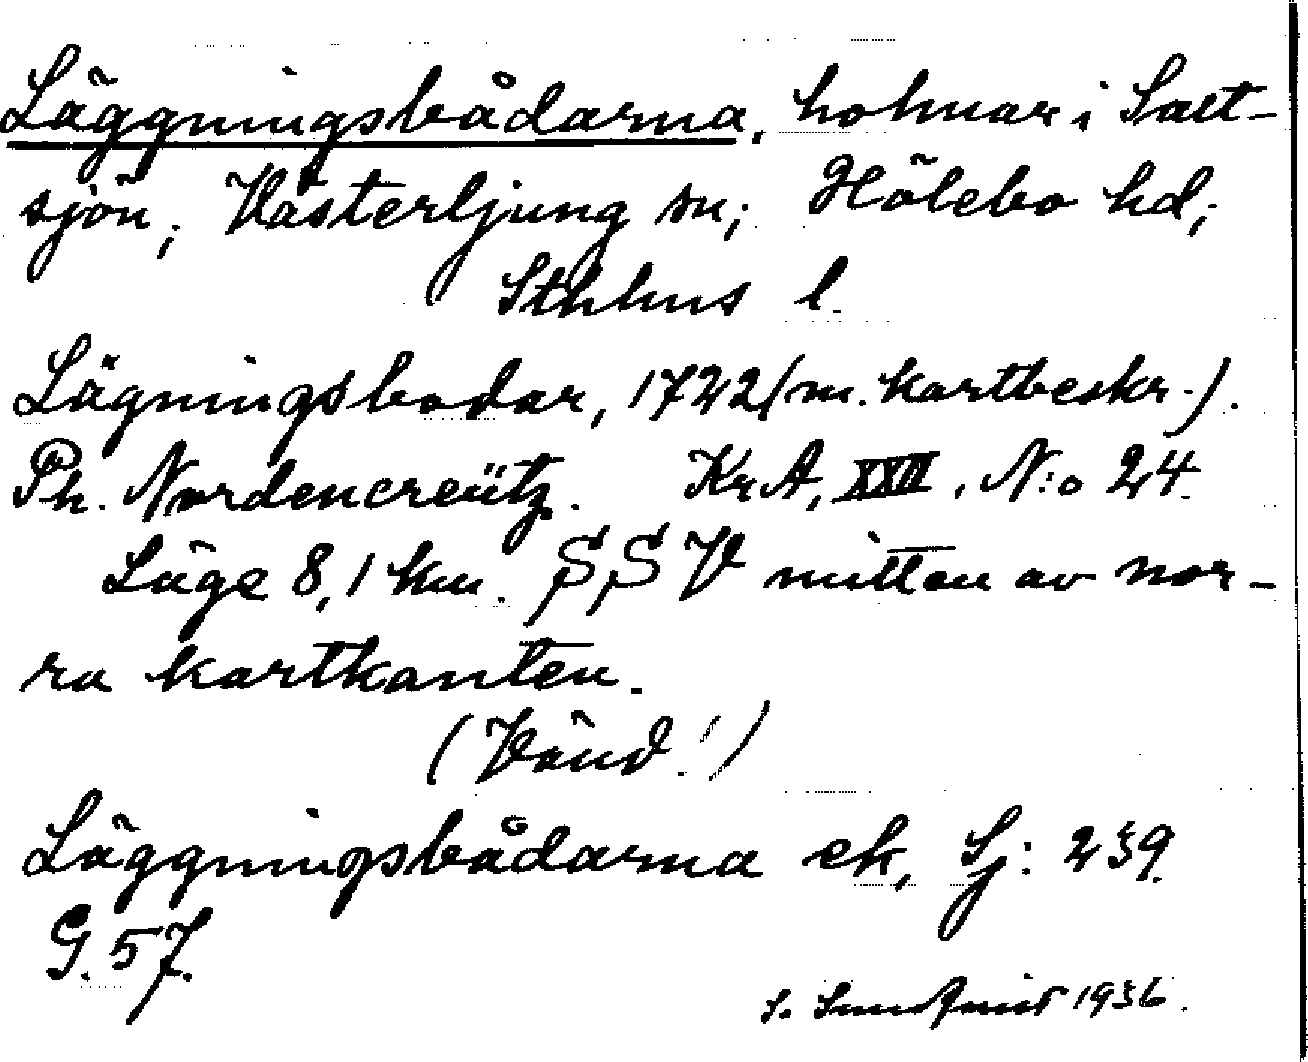 Läggningsbådarna, holmar i Salt-
sjön, Västerljung sn; Hölebo hd;
Sthlms l.
Lägningsbodar, 1722 (m. kartbeskr.).
Ph. Nordencreütz. KrA, XXII, N:o 24.
Läge 8,1 km. SSV mitten av nor-
ra kartkanten.
(Vänd!)
Läggningsbådarna ek, Sj: 239.
G. 57.
S. 1936.